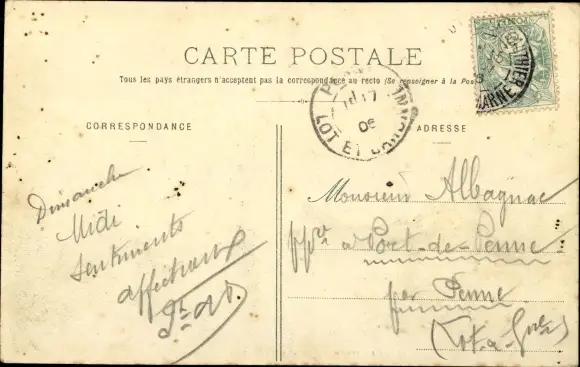 CARTE POSTALE
Tous les pays étrangers n'acceptent pas la correspondance au recto (Se renseigner à la Poste)
CORRESPONDANCE
ADRESSE
LOT ET
17
06
MARNE
Dimanche
Midi
Sentiments
affectueux
Monsieur Albagnac
à Port-de-Penne
par Penne
Lot-&-Gne